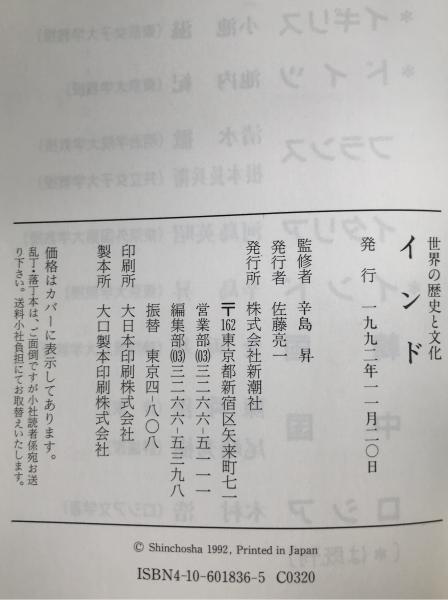 世界の歴史と文化
インド
発行 一九九二年一一月二〇日
監修者 辛島 昇
発行者 佐藤亮一
発行所 株式会社新潮社
〒162東京都新宿区矢来町七一
営業部(03)三二六六―五一一一
編集部(03)三二六六―五三九八
振替 東京四―八〇八
印刷所 大日本印刷株式会社
製本所 大口製本印刷株式会社
価格はカバーに表示してあります。
乱丁・落丁本は、ご面倒ですが小社読者係宛お送
り下さい。送料小社負担にてお取替えいたします。
© Shinchosha 1992, Printed in Japan
ISBN4-10-601836-5 C0320